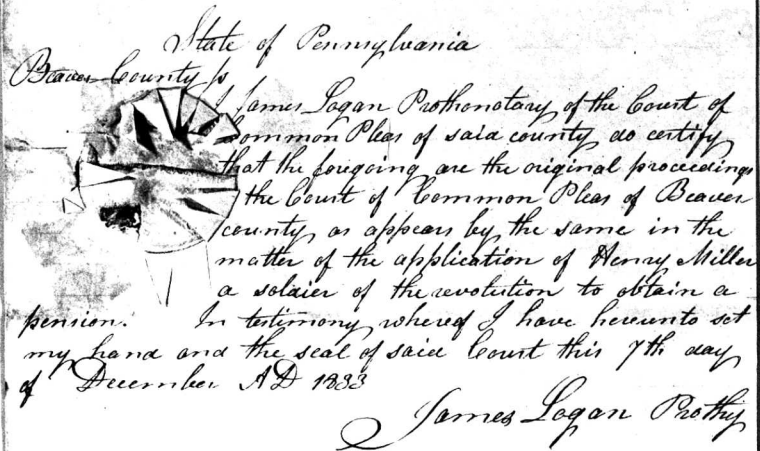 State of Pennsylvania
Beaver County ss
I James Logan Prothonotary of the Court of
Common Pleas of said county do certify
that the foregoing are the original proceedings
the Court of Common Pleas of Beaver
county as appears by the same in the
matter of the application of Henry Miller
a soldier of the revolution to obtain a
pension. In testimony whereof I have hereunto set
my hand and the seal of said Court this 7th day
of December AD 1833
James Logan Prothy